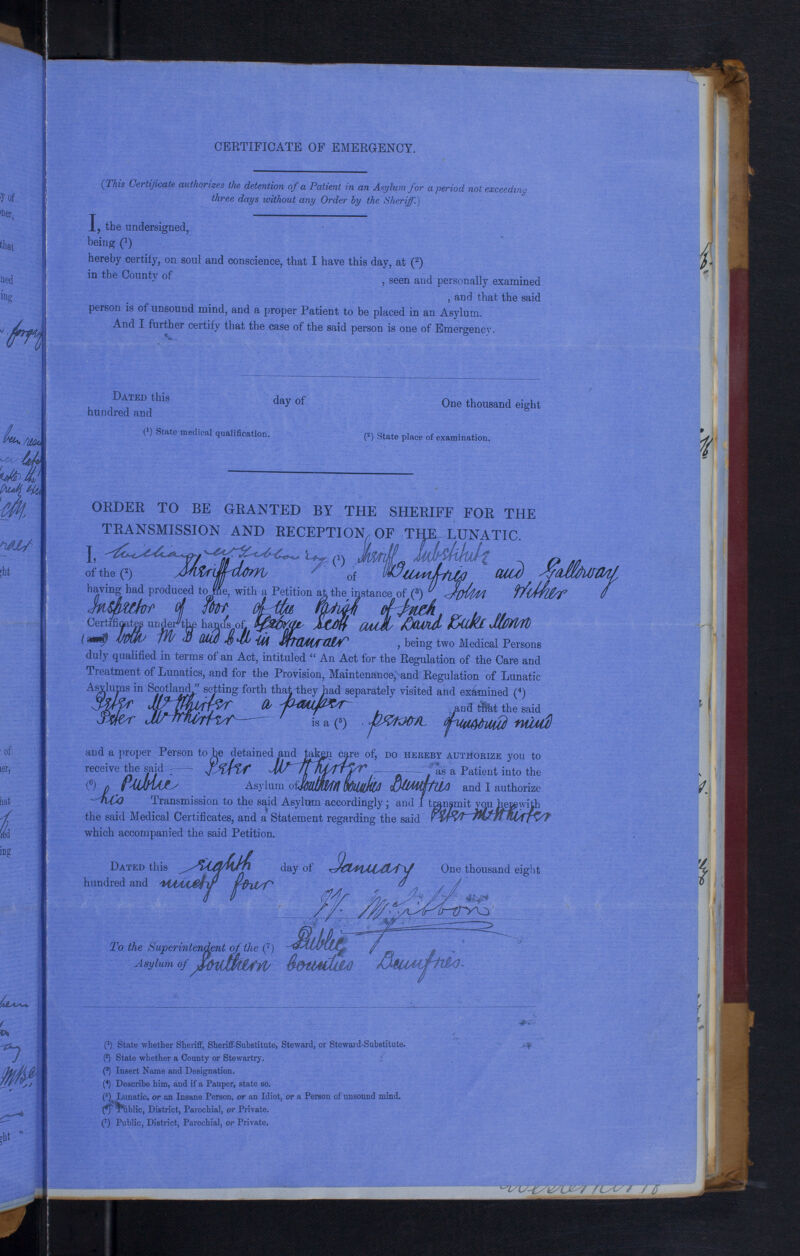 CERTIFICATE OF EMERGENCY.
(This Certificate authorizes the detention of a Patient in an Asylum for a period not exceeding
three days without any Order by the Sheriff.)
I, the undersigned,
being (1)
hereby certify, on soul and conscience, that I have this day, at (2)
in the County of , seen and personally examined
, and that the said
person is of unsound mind, and a proper Patient to be placed in an Asylum.
And I further certify that the case of the said person is one of Emergency.
DATED this day of One thousand eight
hundred and
(1) State medical qualification. (2) State place of examination.
ORDER TO BE GRANTED BY THE SHERIFF FOR THE
TRANSMISSION AND RECEPTION OF THE LUNATIC.
I, William McGibbon Esq (1) Sheriff Substitute
of the (2) Sheriffdom of Dumfries and Galloway
having had produced to me, with a Petition at the instance of (3) John Wither
Inspector of Poor of the Parish of Inch
Certificates under the hands of George Scott and David Duke Monro
both M B and C.M in Stranraer , being two Medical Persons
duly qualified in terms of an Act, intituled “ An Act for the Regulation of the Care and
Treatment of Lunatics, and for the Provision, Maintenance, and Regulation of Lunatic
Asylums in Scotland,” setting forth that they had separately visited and examined (4)
Peter McWhirter a pauper and that the said
Peter McWhirter is a (5) person of unsound mind
and a proper Person to be detained and taken care of, DO HEREBY AUTHORIZE you to
receive the said Peter McWhirter as a Patient into the
(6) Public Asylum of Southern Counties Dumfries and I authorize
his Transmission to the said Asylum accordingly; and I transmit you herewith
the said Medical Certificates, and a Statement regarding the said Peter McWhirter
which accompanied the said Petition.
DATED this eighth day of January One thousand eight
hundred and ninety four
W. McGibbon
To the Superintendent of the (7) Public
Asylum of Southern Counties Dumfries.
(1) State whether Sheriff, Sheriff-Substitute, Steward, or Steward-Substitute.
(2) State whether a County or Stewartry.
(3) Insert Name and Designation.
(4) Describe him, and if a Pauper, state so.
(5) Lunatic, or an Insane Person, or an Idiot, or a Person of unsound mind.
(6) Public, District, Parochial, or Private.
(7) Public, District, Parochial, or Private.